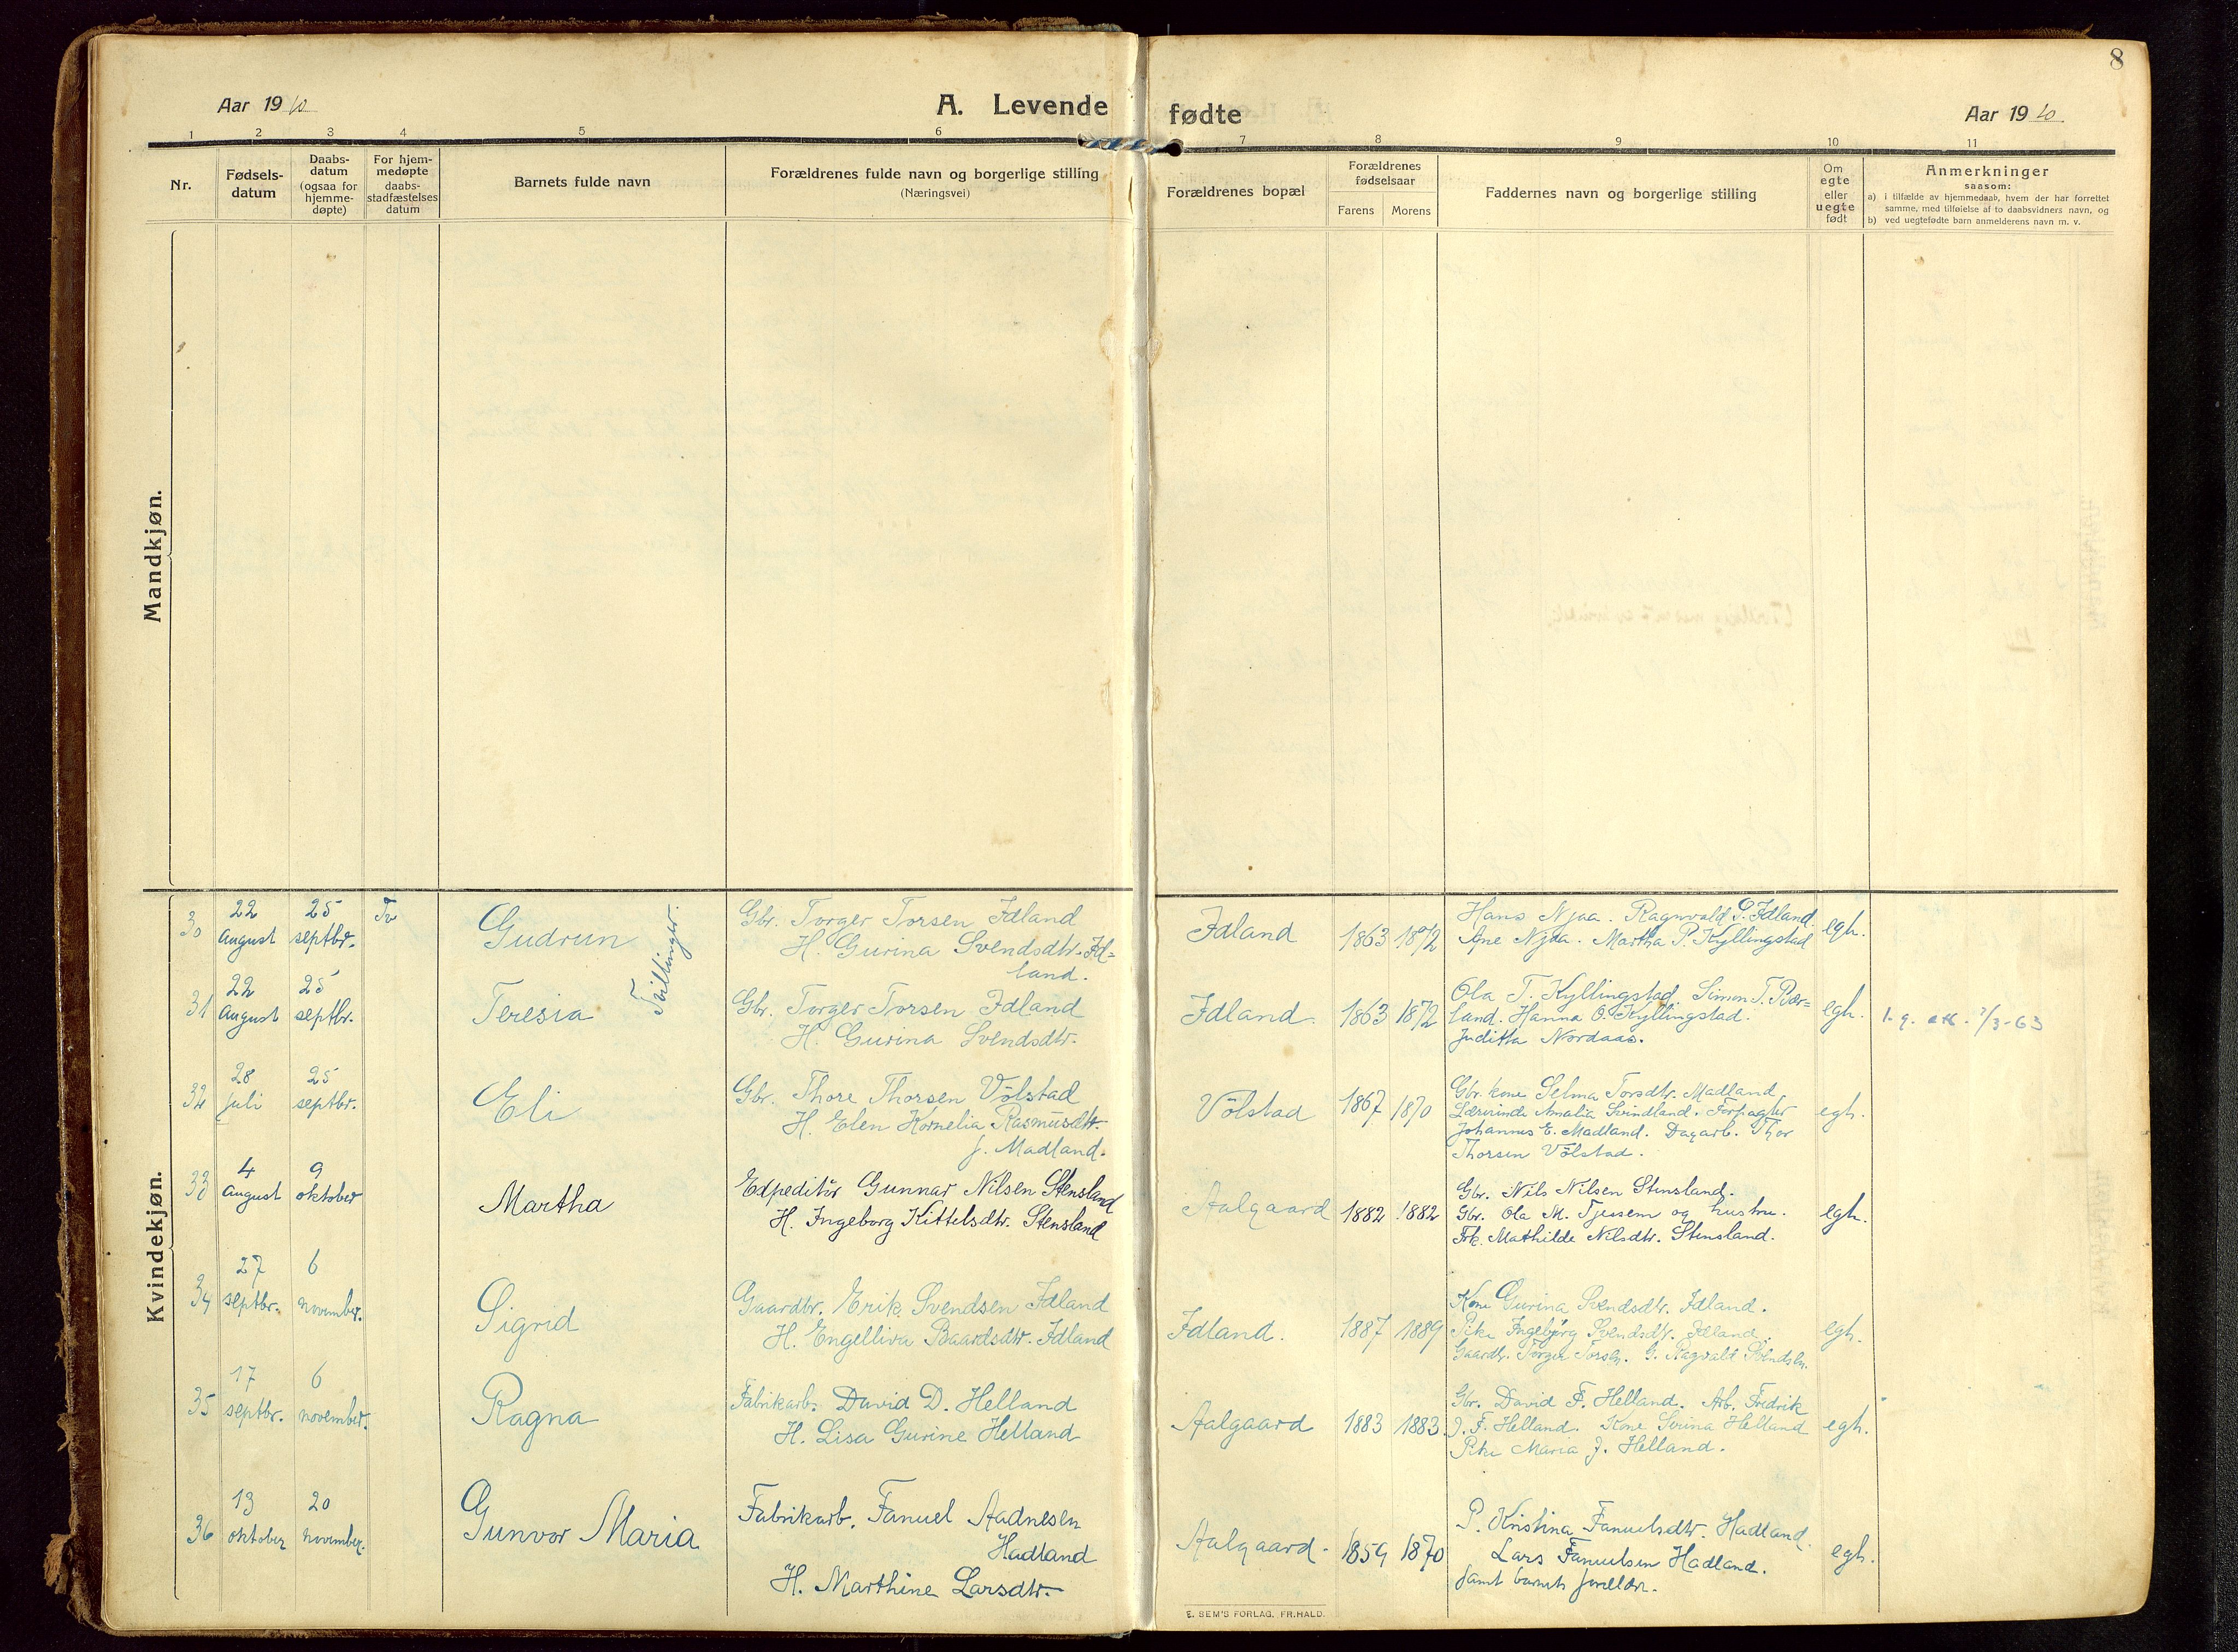 8
Aar 1910
A. Levende fødte
Aar 1910.
1 2 3 4 5 6 7 8 9 10 11
Nr.
Fødsels-
datum
Daabs-
datum
(ogsaa for
hjemme-
døpte)
For hjem-
medøpte
daabs-
stadfæstelses
datum
Barnets fulde navn
Forældrenes fulde navn og borgerlige stilling
(Næringsvei)
Forældrenes bopæl
Forældrenes
fødselsaar
Farens Morens
Faddernes navn og borgerlige stilling
Om
egte
eller
uegte
født
Anmerkninger
saasom:
a) i tilfælde av hjemmedaab, hvem der har forrettet
samme, med tilføielse af to daabsvidners navn, og
b) ved uegtefødte barn anmelderens navn m. v.
Mandkjøn.
Kvindekjøn.
30
22
august
25
septbr.
Tv
Gudrun
Tvillinger.
Gbr. Torger Torsen Idland
H. Gurina Svendsdtr. Id=
land.
Idland
1863 1872
Hans Njaa. Ragnvald S. Idland.
Ane Njaa. Martha P. Kyllingstad
egh.
31
22
August
25
septbr.
Teresia
Gbr. Torger Torsen Idland
H. Gurina Svendsdtr.
Idland.
1863 1872
Ola T. Kyllingstad. Simon T. Bær=
land. Hanna O. Kyllingstad.
Juditha Nordaas.
egh.
/3-63
32
28
juli
25
septbr.
Eli
Gbr. Thore Thorsen Völstad
H. Elen Kornelia Rasmusdtr.
f. Madland.
Völstad
1867 1870
Gbr. kone Selma Torsdtr. Madland,
Lærerinde Amalia Svindland. Forpagter
Johannes E. Madland. Dagarb. Thor
Thorsen Völstad.
egh.
33
4
August
9
oktober
Martha
Expeditör Gunnar Nilsen Stensland
H. Ingeborg Kittelsdtr. Stensland
Aalgaard
1882 1882
Gbr. Nils Nilsen Stensland.
Gbr. Ola M. Tjessem og hustru.
Frk. Mathilde Nilsdtr. Stensland.
egh.
34
27
septbr.
6
november.
Sigrid
Gaardbr. Erik Svendsen Idland
H. Engelliva Baardsdtr. Idland
Idland.
1887 1889
Kone Gurina Svendsdtr. Idland.
Pike Ingebjørg Svendsdtr. Idland.
Gaardbr. Torger Torsen. G. Ragvald Svendsen.
egh.
35
17
septbr.
6
november.
Ragna
Fabrikarb. David D. Helland
H. Lisa Gurine Helland
Aalgaard
1883 1883.
Gbr. David F. Helland. Arb. Fredrik
J. F. Helland. Kone Serina Helland
Pike Maria J. Helland.
egh.
36
13
oktober
20
november.
Gunvor Maria
Fabrikarb. Fanuel Aadnesen
Hadland
H. Marthine Larsdtr.
Aalgaard.
1859 1870
P. Kristina Fanuelsdtr. Hadland.
Lars Fanuelsen Hadland.
samt barnets forældre.
egh.
E. SEM'S FORLAG, FR.HALD.